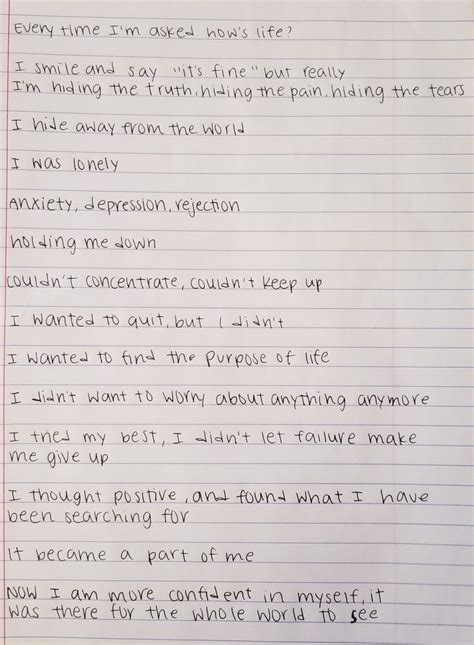 Every time I'm asked how's life?
I smile and say "it's fine" but really
I'm hiding the truth, hiding the pain, hiding the tears
I hide away from the world
I was lonely
Anxiety, depression, rejection
holding me down
couldn't concentrate, couldn't keep up
I wanted to quit, but I didn't
I wanted to find the purpose of life
I didn't want to worry about anything anymore
I tried my best, I didn't let failure make
me give up
I thought positive, and found what I have
been searching for
It became a part of me
Now I am more confident in myself, it
was there for the whole world to see